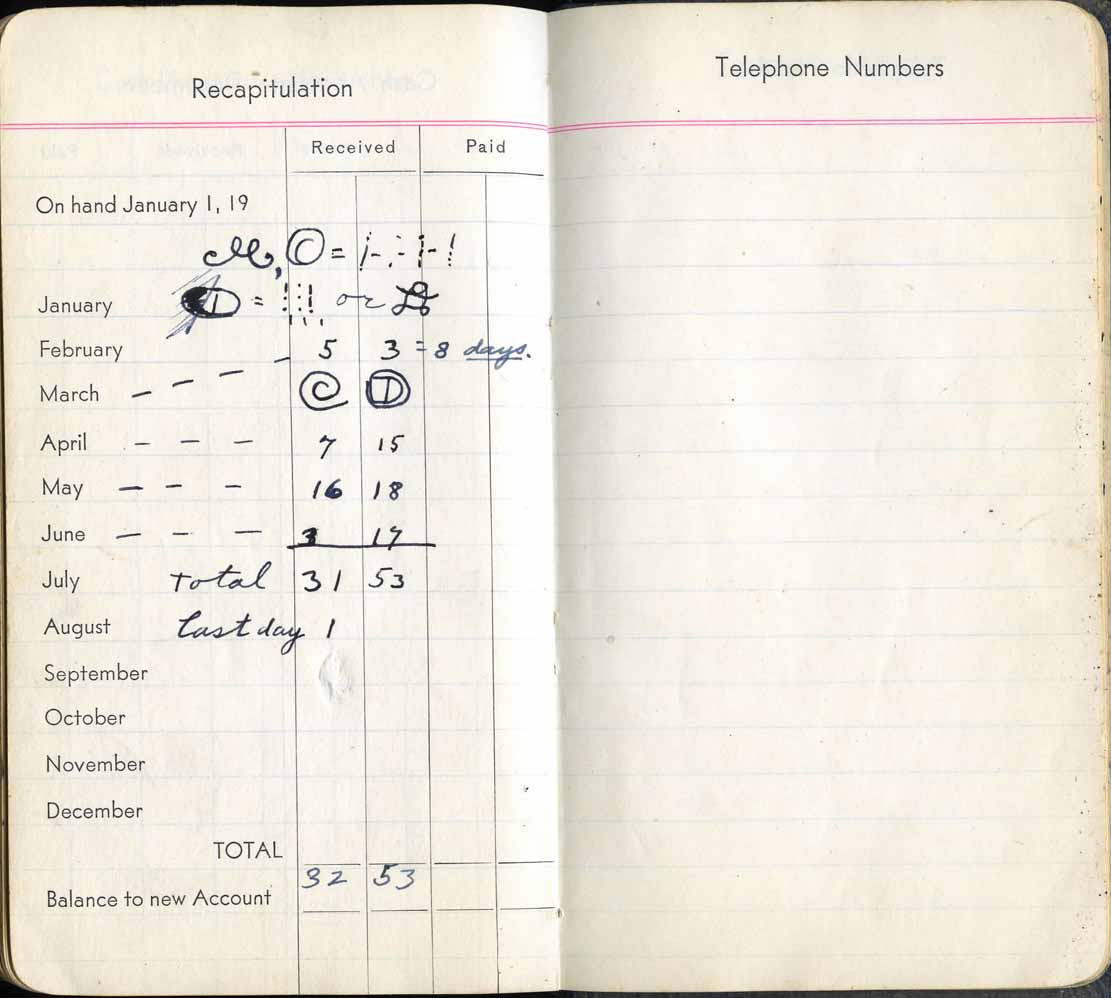 Recapitulation
Received Paid
On hand January 1, 19
C =
January D = or
February 5 3 = 8 days.
March C D
April 7 15
May 16 18
June 3 17
July Total 31 53
August Last day 1
September
October
November
December
TOTAL
32 53
Balance to new Account
Telephone Numbers